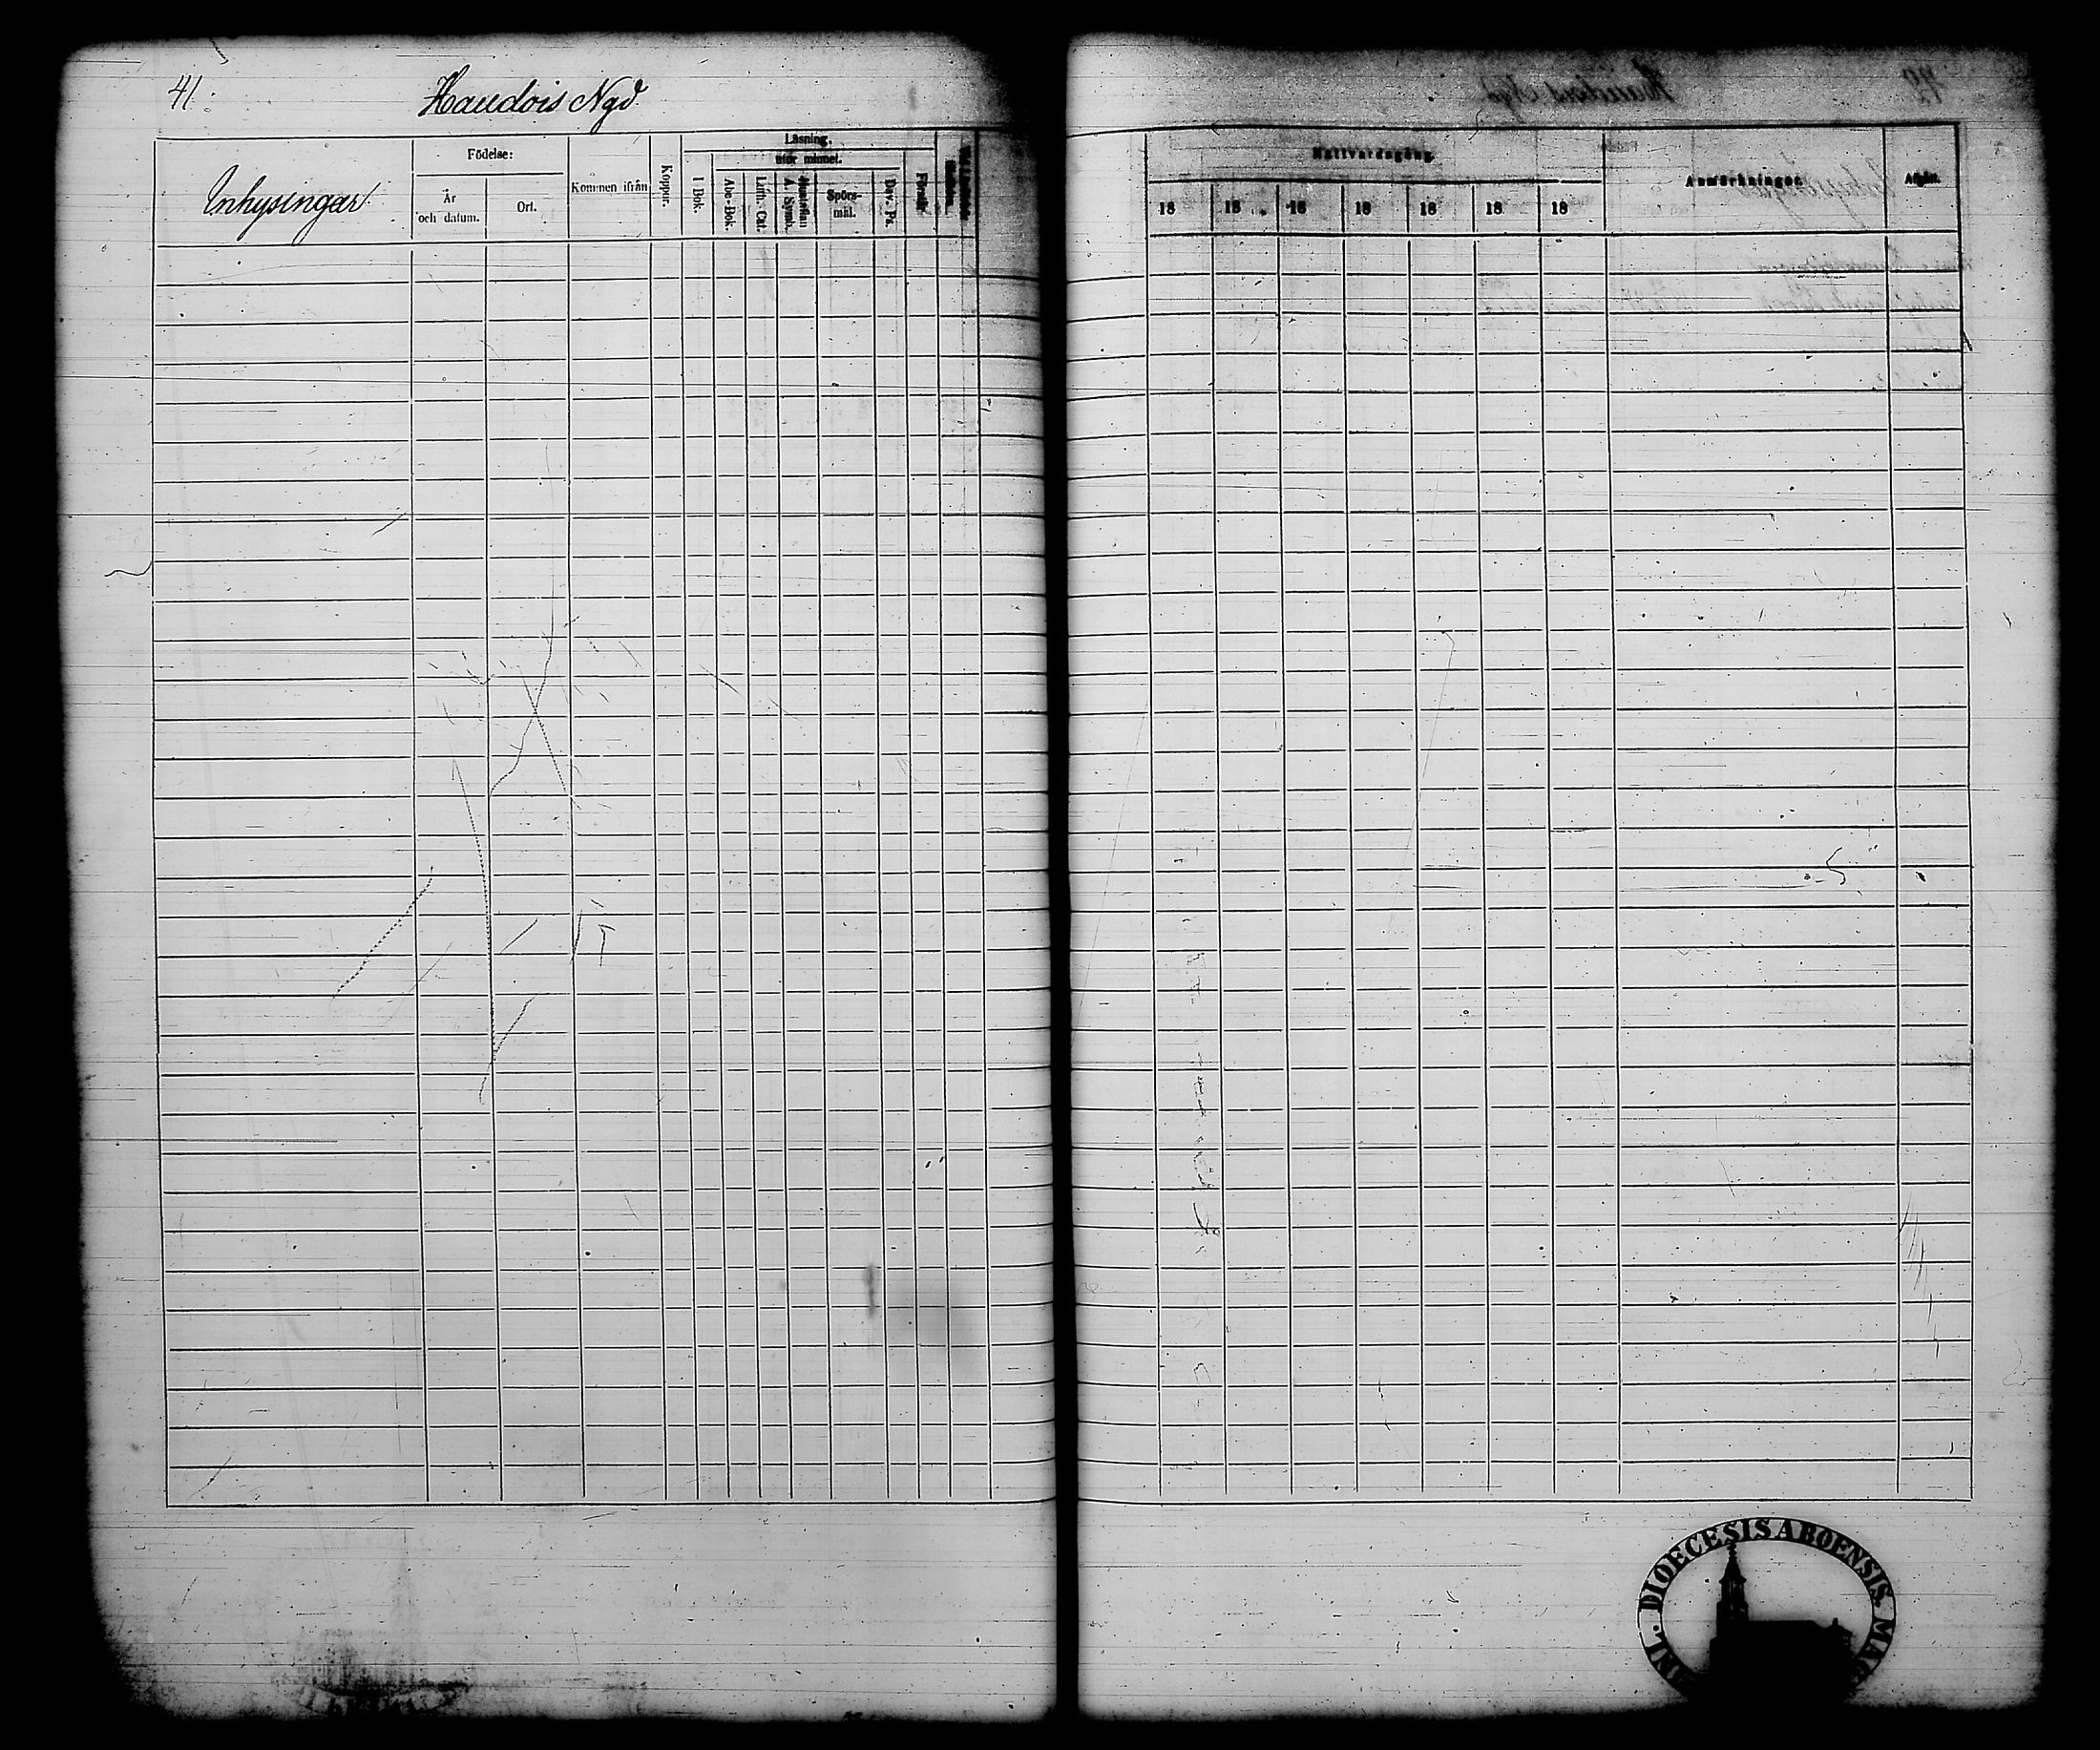 41.
Haudois Ngd
Inhysingar
Födelse:
År
och datum.
Ort.
Kommen ifrån
Koppor.
Läsning.
utur minnet.
I Bok.
Abc-Bok.
Luth. Cat.
Hustaflan
A. Symb.
Spörs-
mål.
Dav. Ps.
Förstår
Nattvardsgång.
18 18 18 18 18 18 18
Anmärkningar.
Afgått.
DIOECESIS ABOENSIS.